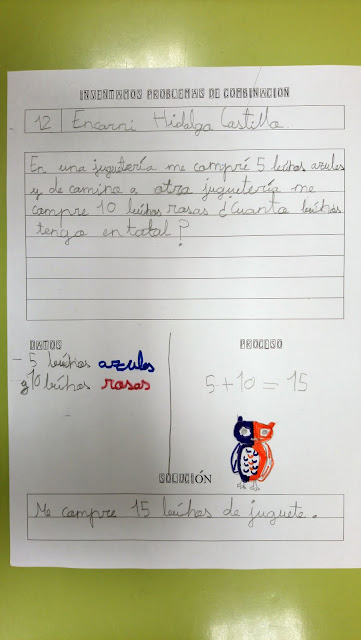 INVENTAMOS PROBLEMAS DE COMBINACIÓN
12 Encarni Hidalga Castilla.
En una juguetería me compré 5 búhos azules
y de camino a otra juguetería me
compre 10 búhos rosas ¿Cuanto búhos
tengo en total?
DATOS
- 5 búhos azules
y 10 búhos rosas
PROCESO
5+10=15
SOLUCIÓN
Me compre 15 búhos de juguete.